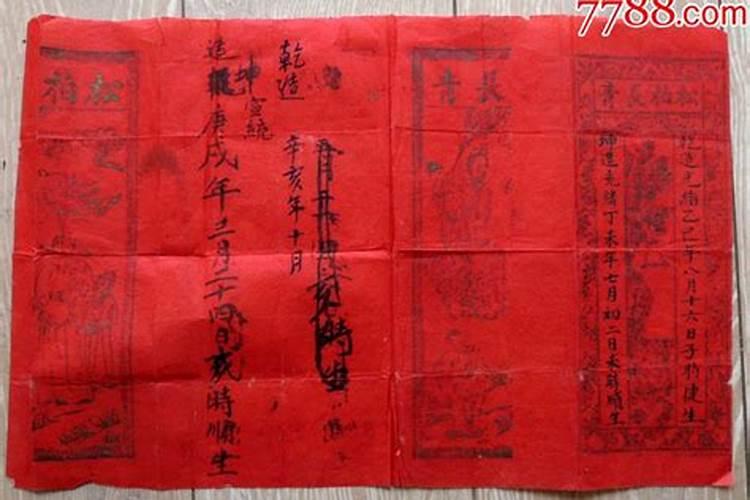 7788.com
松柏長青
乾造光緒乙巳年八月十六日子時健生
坤造光緒丁未年七月初二日未時順生
長青
時生
乾造
辛亥年十月
宣統
坤
造庚戌年三月二十四日時順生
松柏